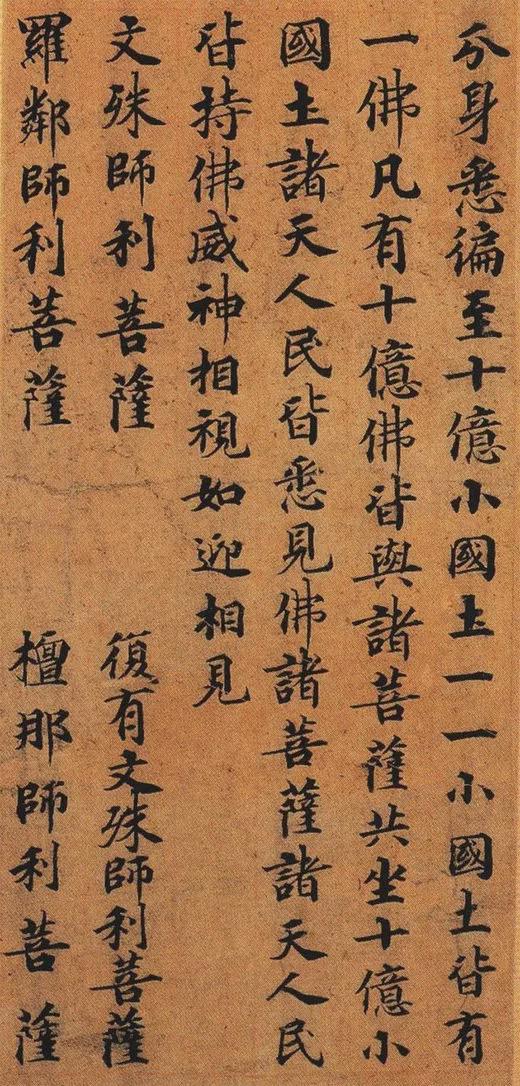 分身悉徧至十億小國土一一小國土皆有
一佛凡有十億佛皆與諸菩薩共坐十億小
國土諸天人民皆悉見佛諸菩薩諸天人民
皆持佛威神相視如迎相見
文殊師利菩薩 復有文殊師利菩薩
羅鄰師利菩薩 檀那師利菩薩